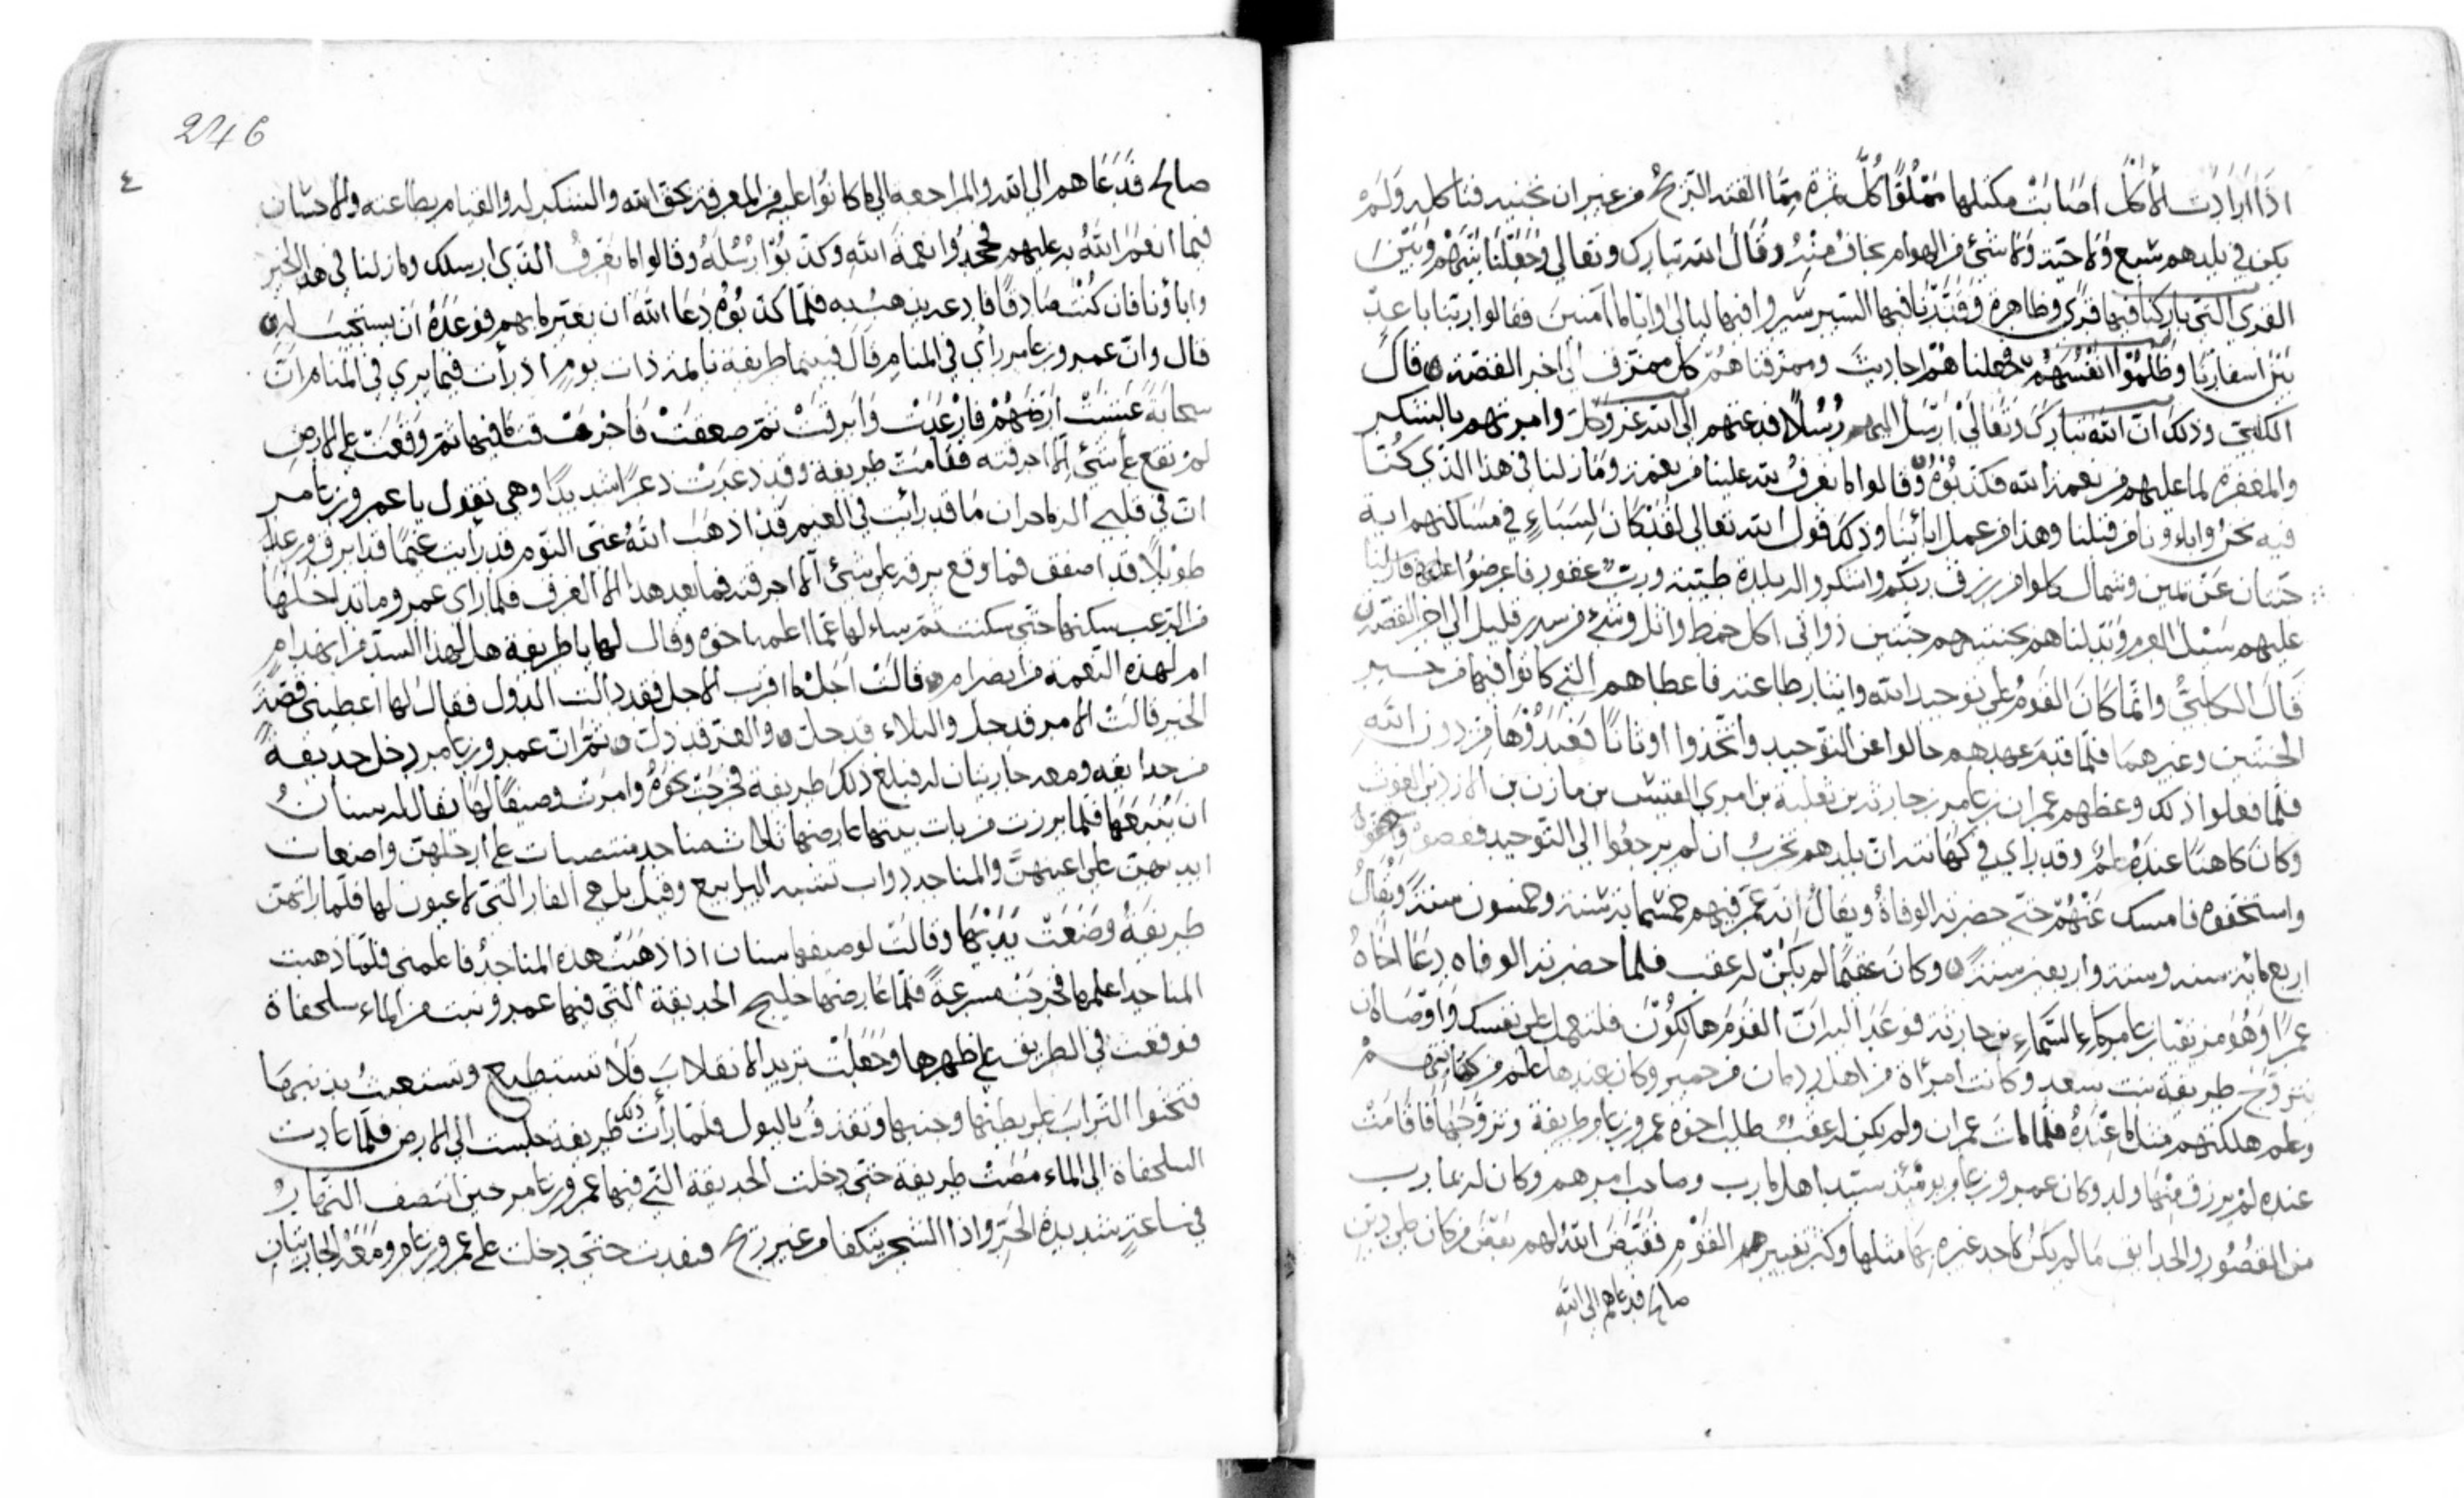 اذا ارادت الاكل اصابت مكتلها مملوًا كل ثمرة مما القته الريح من غير ان تجنيه فتاكله ولم
يكن في بلدهم سبع ولا حية ولا شئ من الهوام يخاف منه وقال الله تبارك وتعالى وجعلنا بينهم وبين
القرى التي باركنا فيها قرى ظاهرة وقدرنا فيها السير سيروا فيها ليالي واياما آمنين فقالوا ربنا باعد
بين اسفارنا وظلموا انفسهم فجعلناهم احاديث ومزقناهم كل ممزق الى اخر القصة قال
الكلبي وذلك ان الله تبارك وتعالى ارسل اليهم رسلا فدعتهم الى الله عز وجل وامرتهم بالشكر
والمغفرة لما عليهم من نعمة الله فكذبوه وقالوا ما نعرف لله علينا من نعمة وما زلنا في هذا الذي كنا
فيه نحن واباءونا من قبلنا وهذا من عمل ابائنا وذلك قول الله تعالى لقد كان لسباءٍ في مساكنهم اية
جنتان عن يمين وشمال كلوا من رزق ربكم واشكروا له بلدة طيبة ورب غفور فاعرضوا فارسلنا
عليهم سيل العرم وبدلناهم بجنتيهم جنتين ذواتى اكل خمط واثل وشئ من سدر قليل الى اخر القصة
قال الكلبي وانما كان القوم على توحيد الله واينا بطاعته فاعطاهم التي كانوا فيها من خير
الجنتين وغيرهما فلما عهدهم حالوا عن التوحيد واتخذوا اوثانا فعبدوها من دون الله
فلما فعلوا ذلك وعظهم عمران بن عامر بن حارثة بن ثعلبة بن امرئ القيس بن مازن بن الازد بن الغوث
وكان كاهنًا عنده علم وقد راى في كهانته ان بلدهم تخرب ان لم يرجعوا الى التوحيد فعصوه
واستخفوه فامسك عنهم حتى حضرته الوفاة ويقال انه عمر فيهم خمسمائة سنة وخمسون سنة ويقال
اربع مائة سنة وستة واربعين سنة وكان عقيما لم يكن له عقب فلما حضرته الوفاه دعا اخاه
عمرا وهو مزيقيا بن عامر ماء السماء بن حارثة فوعد اليه ان القوم هالكون فلتعمل على نفسك واوصاه ان
يتزوج طريفة بنت سعد وكانت امراة من اهل ردمان من حمير وكان عندها علم من كهانتهم
وعلم هلكتهم مثل ما عنده فلما مات عمران ولم يكن له عقب طلب اخوه عمرو بن عامر طريفة وتزوجها فاقامت
عنده لم يرزق منها ولد وكان عمرو بن عامر يومئذ سيد اهل مارب وصاحب امرهم وكان له بمارب
من القصور والحدائق ما لم يكن لاحد غيره بها مثلها وكثر تغييرهم القوم فقيض الله لهم بعض من كان على دين
صالح فدعاهم الى الله
246
٤
صالح فدعاهم الى الله والمراجعه الى ما كانوا عليه من المعرفة بحق الله والشكر له والقيام بطاعته والاحسان
فيما انعم الله به عليهم فجحدوا نعمة الله وكذبوا رسله وقالوا ما نعرف الذي ارسلك وما زلنا في هذا الخير
واباؤنا فان كنت صادقا فادعه يذهب به فلما كذبوه دعا الله ان يغير ما بهم فوعده ان يستجيب له
قال وان عمرو بن عامر رأى في المنام قال فبينما طريفة نائمة ذات يوم اذ رأت فيما يرى في المنام ان
سحابة غشيت ارضهم فارعدت وابرقت ثم صعقت فاحرقت ما فيها ثم وقعت على الارض
لم تقع على شئ الا احرقته فقامت طريفة وقد ذعرت ذعرا شديدا وهي تقول يا عمرو بن عامر
ان في قلبي الما حران ما قد رائت في الغيم قد اذهب الله عنى النوم قد رايت غيما قد ابرق ورعد
طويلا قد اصعق فما وقع برقه على شئ الا احرقه فما بعد هذا الا الغرق فلما راى عمرو ما تداخلها
من الرعب سكنها حتى سكنت ثم ساءلها عما اعلمها اخوه وقال لها يا طريفة هل لهذا السد من انهدام
ام لهذه النعمه من انصرام قالت اجل ما اقرب الاجل فقد دالت الدول فقال لها اعطيني قصة
الخبر قالت الامر قد جل والبلاء قد حل والعز قد ذل ثم ان عمرو بن عامر دخل حديقة
من حدايقه ومعه جاريتان له فبلغ ذلك طريفة فخرجت نحوه وامرت وصيفا لها يقال له سنان
ان يتبعها فلما برزت من باب بيتها عارضها ثلاث مناجد منتصبات على ارجلهن واضعات
ايديهن على اعينهن والمناجد دواب تشبه اليرابيع وقيل بل هي الفار التي لا عيون لها فلما راتهن
طريفة وضعت يديها وقالت لوصيفها سنان اذا ذهبت هذه المناجد فاعلمني فلما ذهبت
المناجد اعلمها فخرجت مسرعة فلما عارضها خليج الحديقة التي فيها عمرو وثبت من الماء سلحفاة
فوقعت في الطريق على ظهرها وجعلت تريد الانقلاب فلا تستطيع وتستعين بذنبها
فتحثوا التراب على بطنها وجنبها وتقذف بالبول فلما رأت ذلك طريفة جلست الى الارض فلما عادت
السلحفاة الى الماء مضت طريفة حتى دخلت الحديقة التي فيها عمرو بن عامر حين انتصف النهار
في ساعة شديدة الحر واذا الشجر يتكفا من غير ريح فنفذت حتى دخلت على عمرو بن عامر ومعه الجاريتان